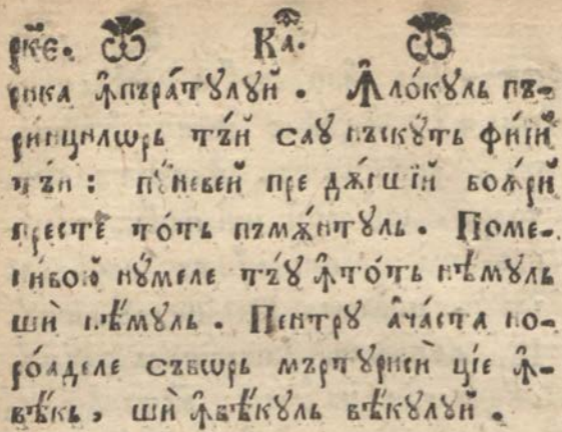 рика ꙟ҆пъра́тулуй . Ꙟ҆ло́куль пъ-
ри́нцилѡрь тъ́й сау нъскуть фи́їй
тъ́и : пꙋ́невей пре дѫ́ншїй боѧ́рй
песте то́ть пъмѫ́нтуль . Поме-
ни́вою нꙋ́меле тъ́ꙋ ꙟ҆то́ть нѣ́муль
шѝ нѣ́муль . Пентрꙋ а҆ча́ста но-
ро́аделе съвѡрь мъртꙋрисѝ цїе ꙟ҆-
вѣ́кь , шѝ ꙟ҆вѣ́куль вѣ́кꙋлꙋй .